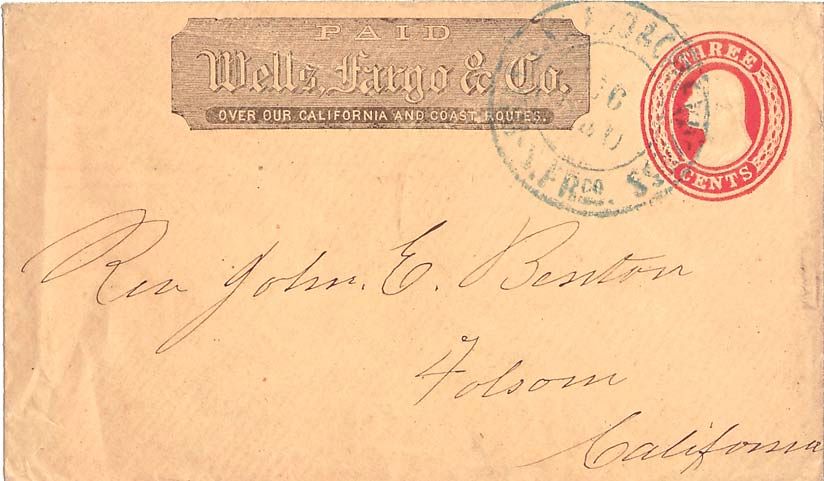 PAID
Wells, Fargo & Co.
OVER OUR CALIFORNIA AND COAST ROUTES.
THREE
CENTS
Rev John. E. Benton
Folsom
California